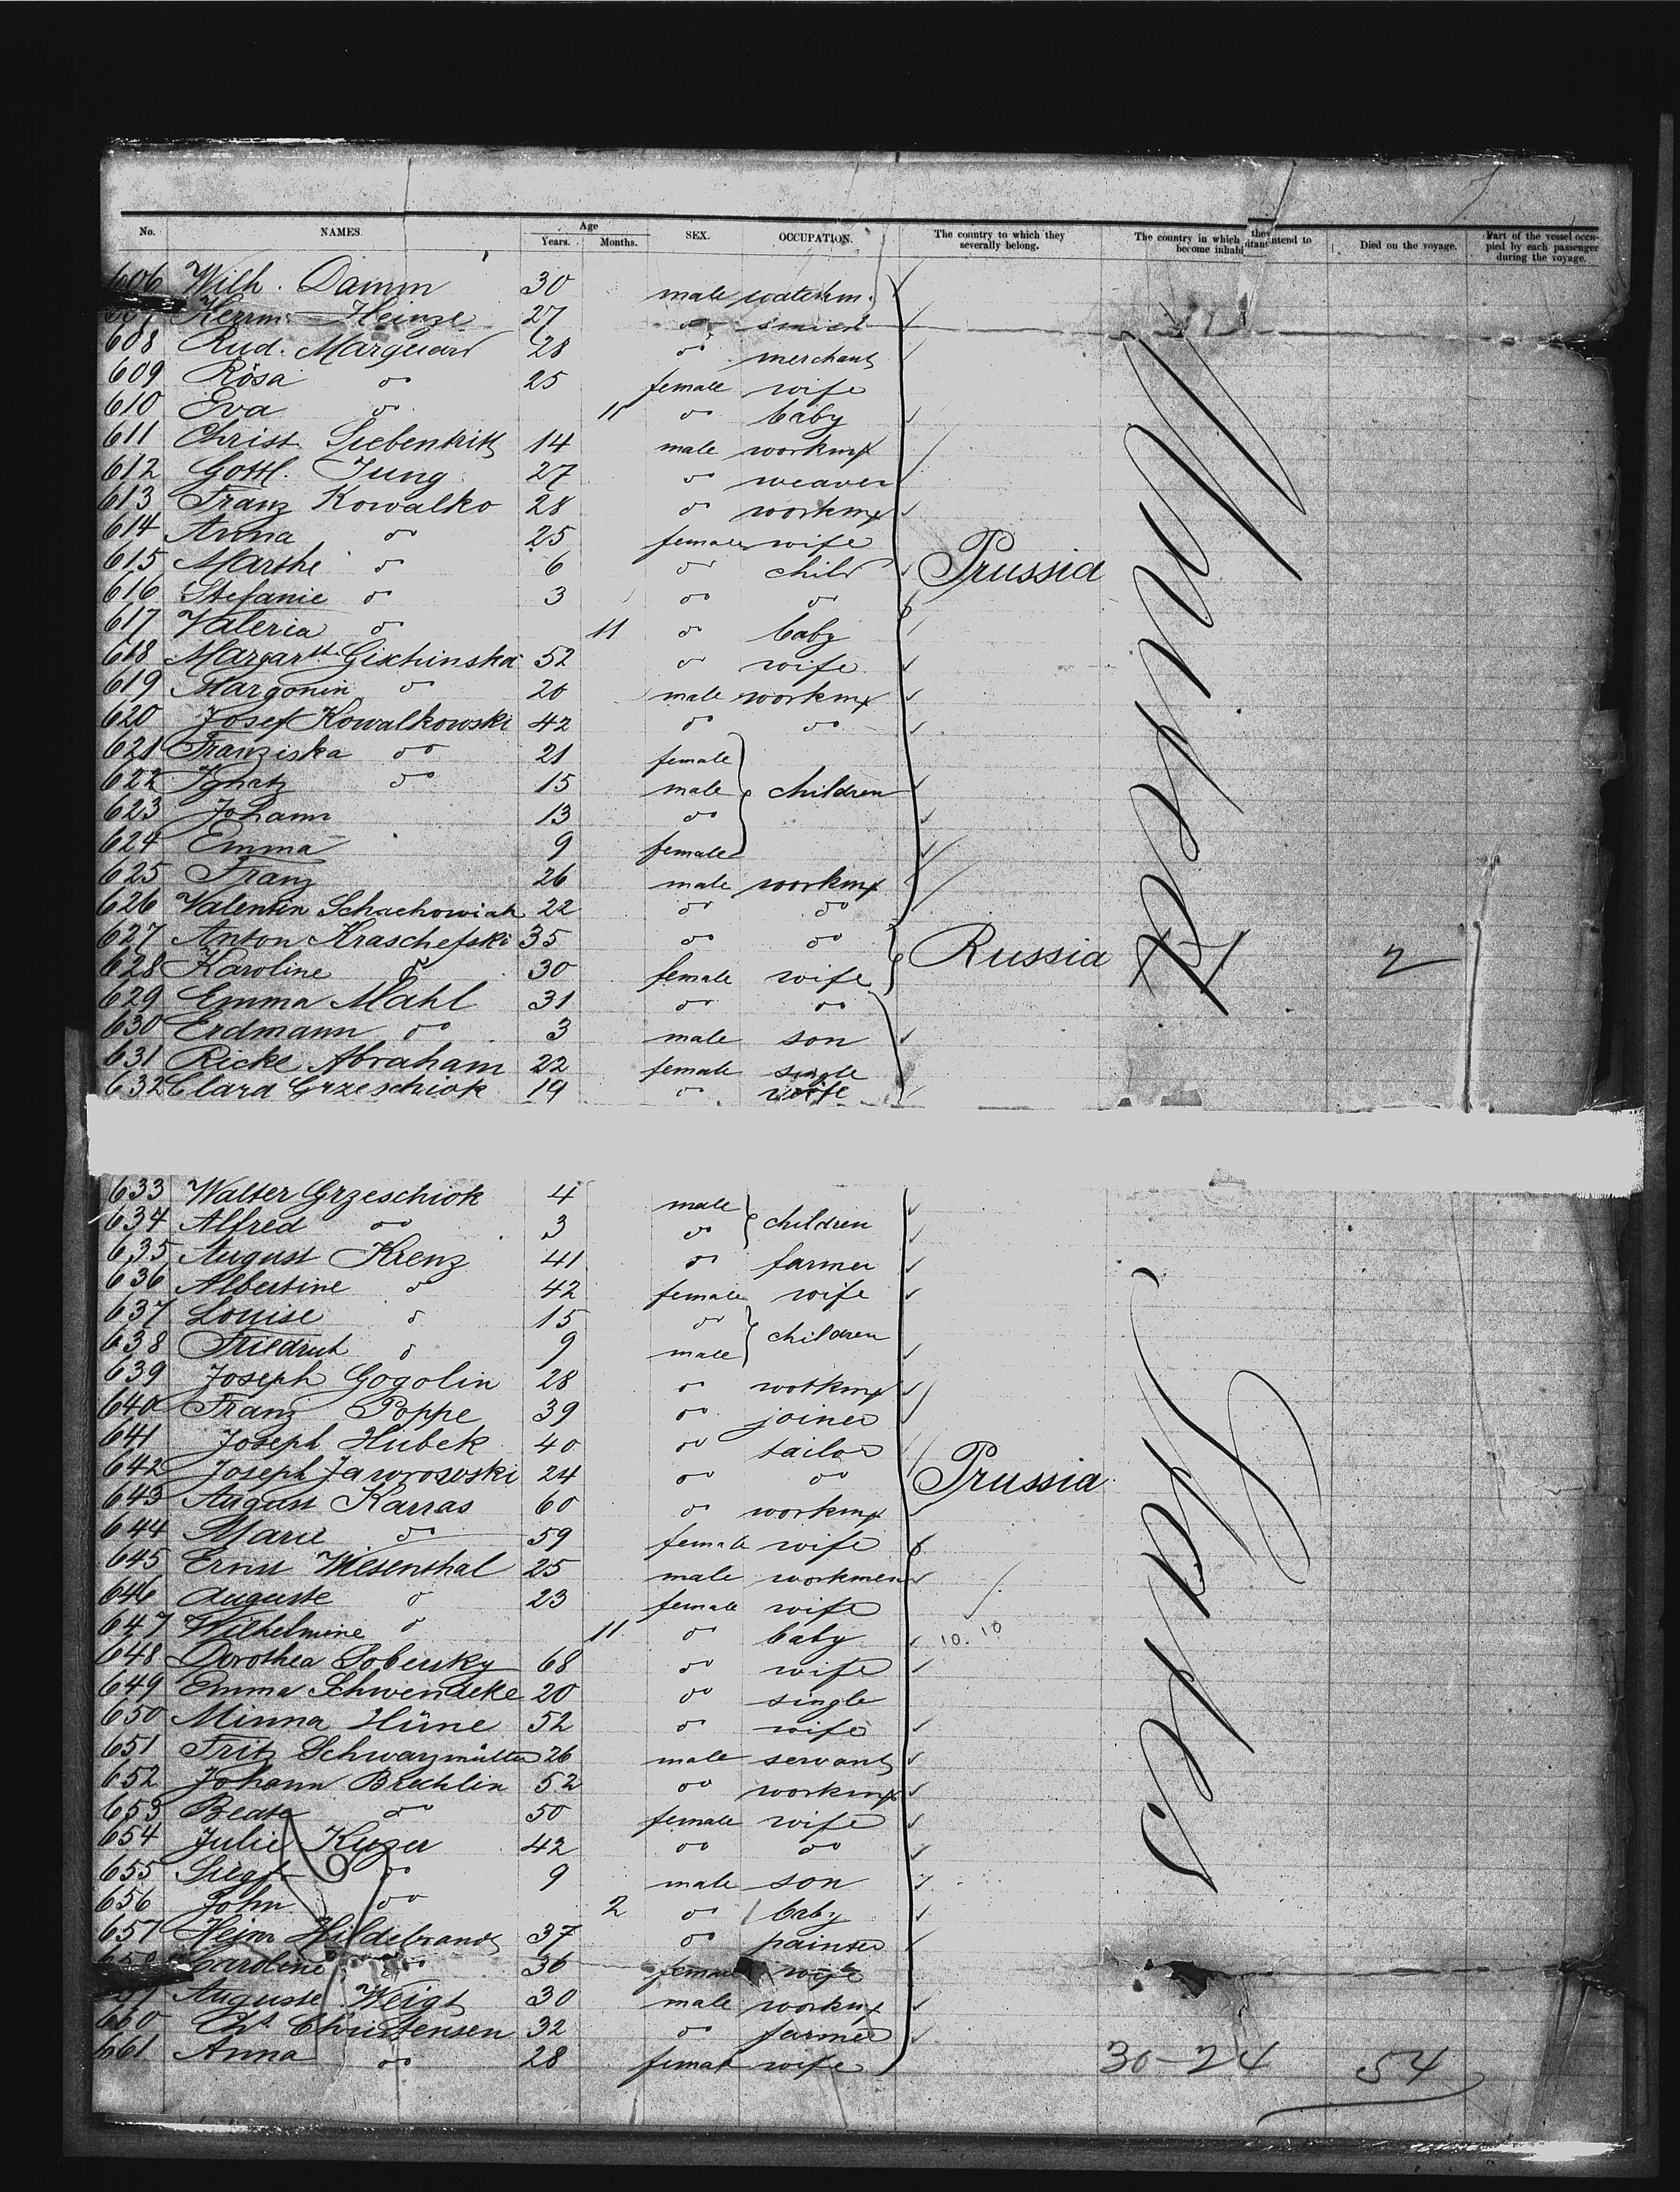 No. NAMES. Age Years. Months. SEX. OCCUPATION. The country to which they severally belong. The country in which they intend to become inhabitants Died on the voyage. Part of the vessel occupied by each passenger during the voyage.
606 Wilh. Damm 30 male
607 Herrm. Heinze 27 do
608 Rud. Marquard 28 do merchant
609 Rosa do 25 female wife
610 Eva do 11 do baby
611 Christ. Siebentritt 14 male workmx
612 Gottl. Jung 27 do weaver
613 Franz Kowalko 28 do workmx
614 Anna do 25 female wife
615 Marthe do 6 do child Prussia
616 Stefanie do 3 do do
617 Valeria do 11 do baby
618 Margartth Gischinska 52 do wife
619 Margonin do 20 male workmx
620 Josef Kowalkowski 42 do do
621 Franziska do 21 female
622 Ignatz do 15 male children
623 Johann 13 do
624 Emma 9 female
625 Franz 26 male workmx
626 Valentin Schachowiak 22 do do
627 Anton Kraschefski 35 do do Russia 2
628 Karoline do 30 female wife
629 Emma Mahl 31 do do
630 Erdmann do 3 male son
631 Ricke Abraham 22 female single
632 Clara Grzeschiok 19 do wife
633 Walter Grzeschiok 4 male children
634 Alfred do 3 do
635 August Krenz 41 do farmer
636 Albertine do 42 female wife
637 Louise do 15 do children
638 Friedrich do 9 male
639 Joseph Gogolin 28 do workmx
640 Franz Poppe 39 do joiner
641 Joseph Hubek 40 do tailor
642 Joseph Jaworowski 24 do do Prussia
643 August Karras 60 do workmx
644 Marie do 59 female wife
645 Ernst Wiesenthal 25 male workmen
646 Auguste do 23 female wife
647 Wilhelmine do 11 do baby 10.10
648 Dorothea Sobersky 68 do wife
649 Emma Schwendeke 20 do single
650 Minna Hüne 52 do wife
651 Fritz Schwarzmüller 26 male servant
652 Johann Brechlin 52 do workmx
653 Beate do 50 female wife
654 Julie Kuzer 42 do do
655 Siegf. do 9 male son
656 John do 2 do baby
657 Heinr Hildebrandt 37 do painter
658 Caroline do 36 female wife
659 Auguste Weigt 30 male workmx
660 Chr. Christensen 32 do farmer
661 Anna do 28 female wife
30-24 54